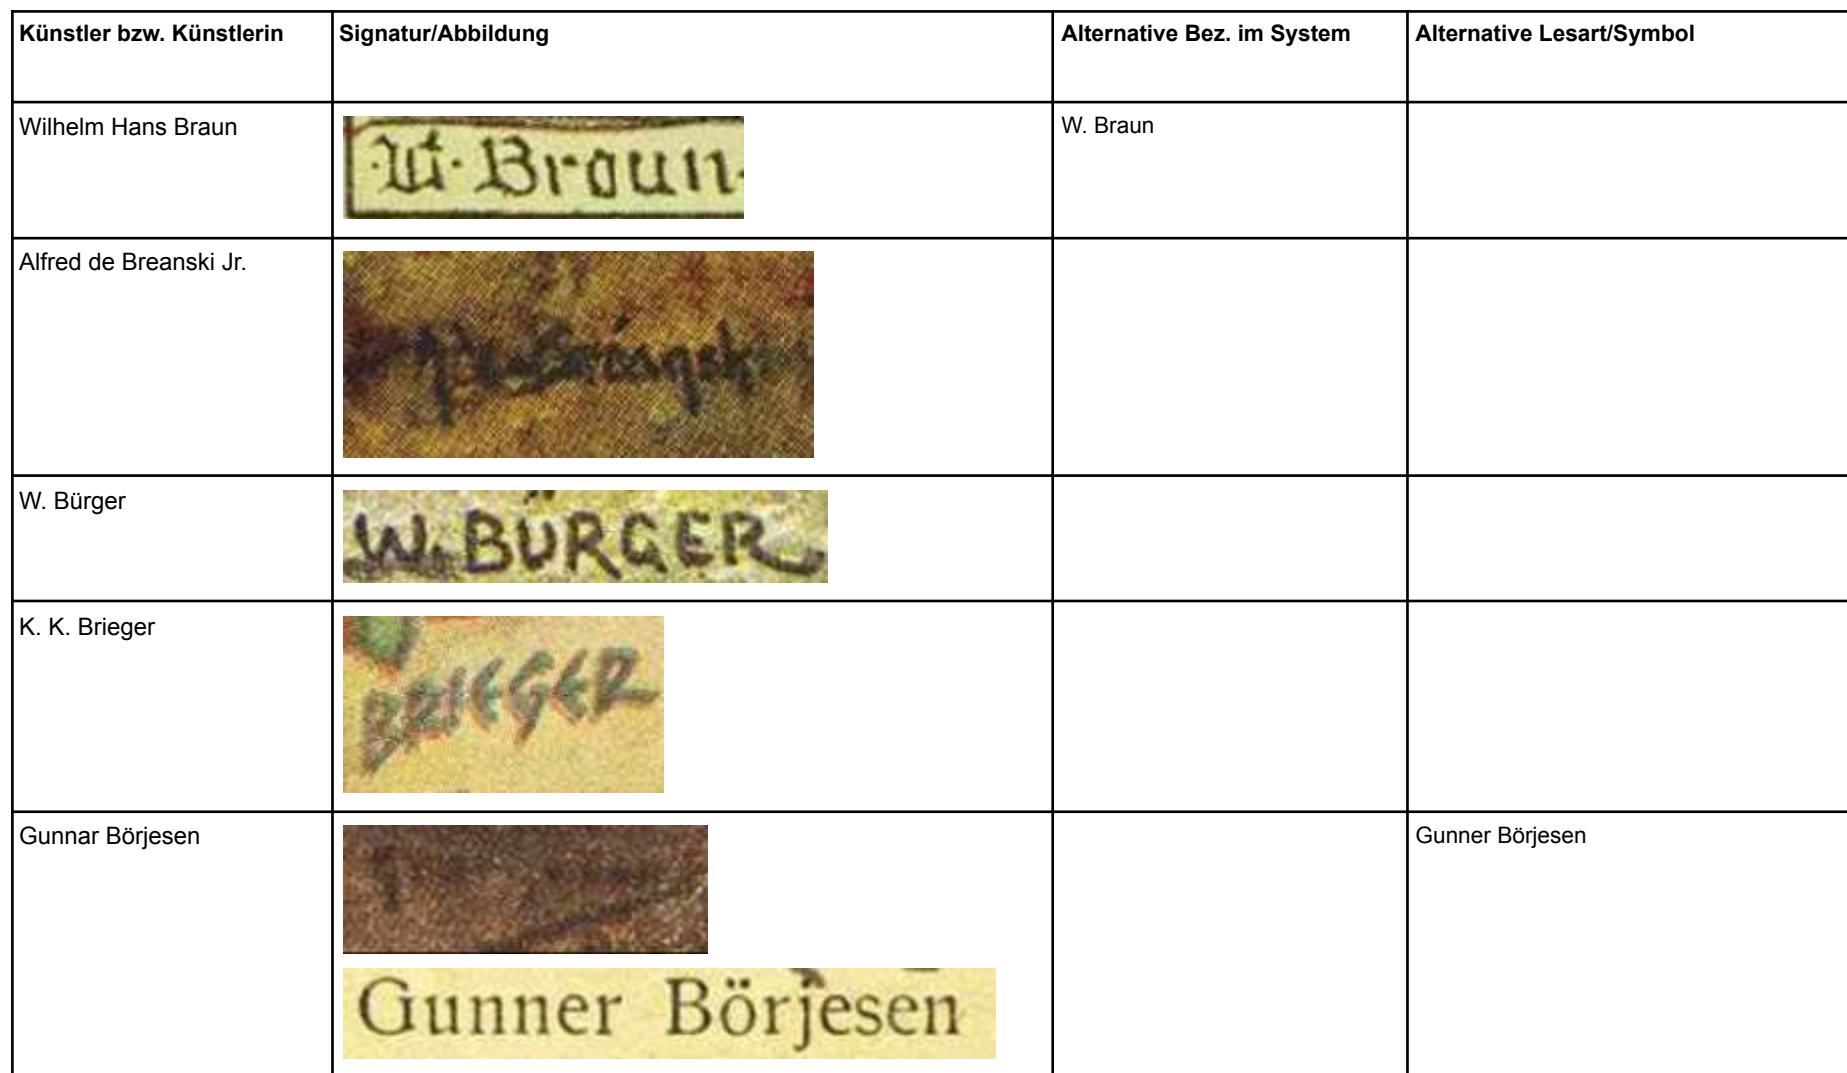 Künstler bzw. Künstlerin Signatur/Abbildung Alternative Bez. im System Alternative Lesart/Symbol
Wilhelm Hans Braun W. Braun W. Braun
Alfred de Breanski Jr.
W. Bürger W. BÜRGER
K. K. Brieger BRIEGER
Gunnar Börjesen Gunner Börjesen
Gunner Börjesen